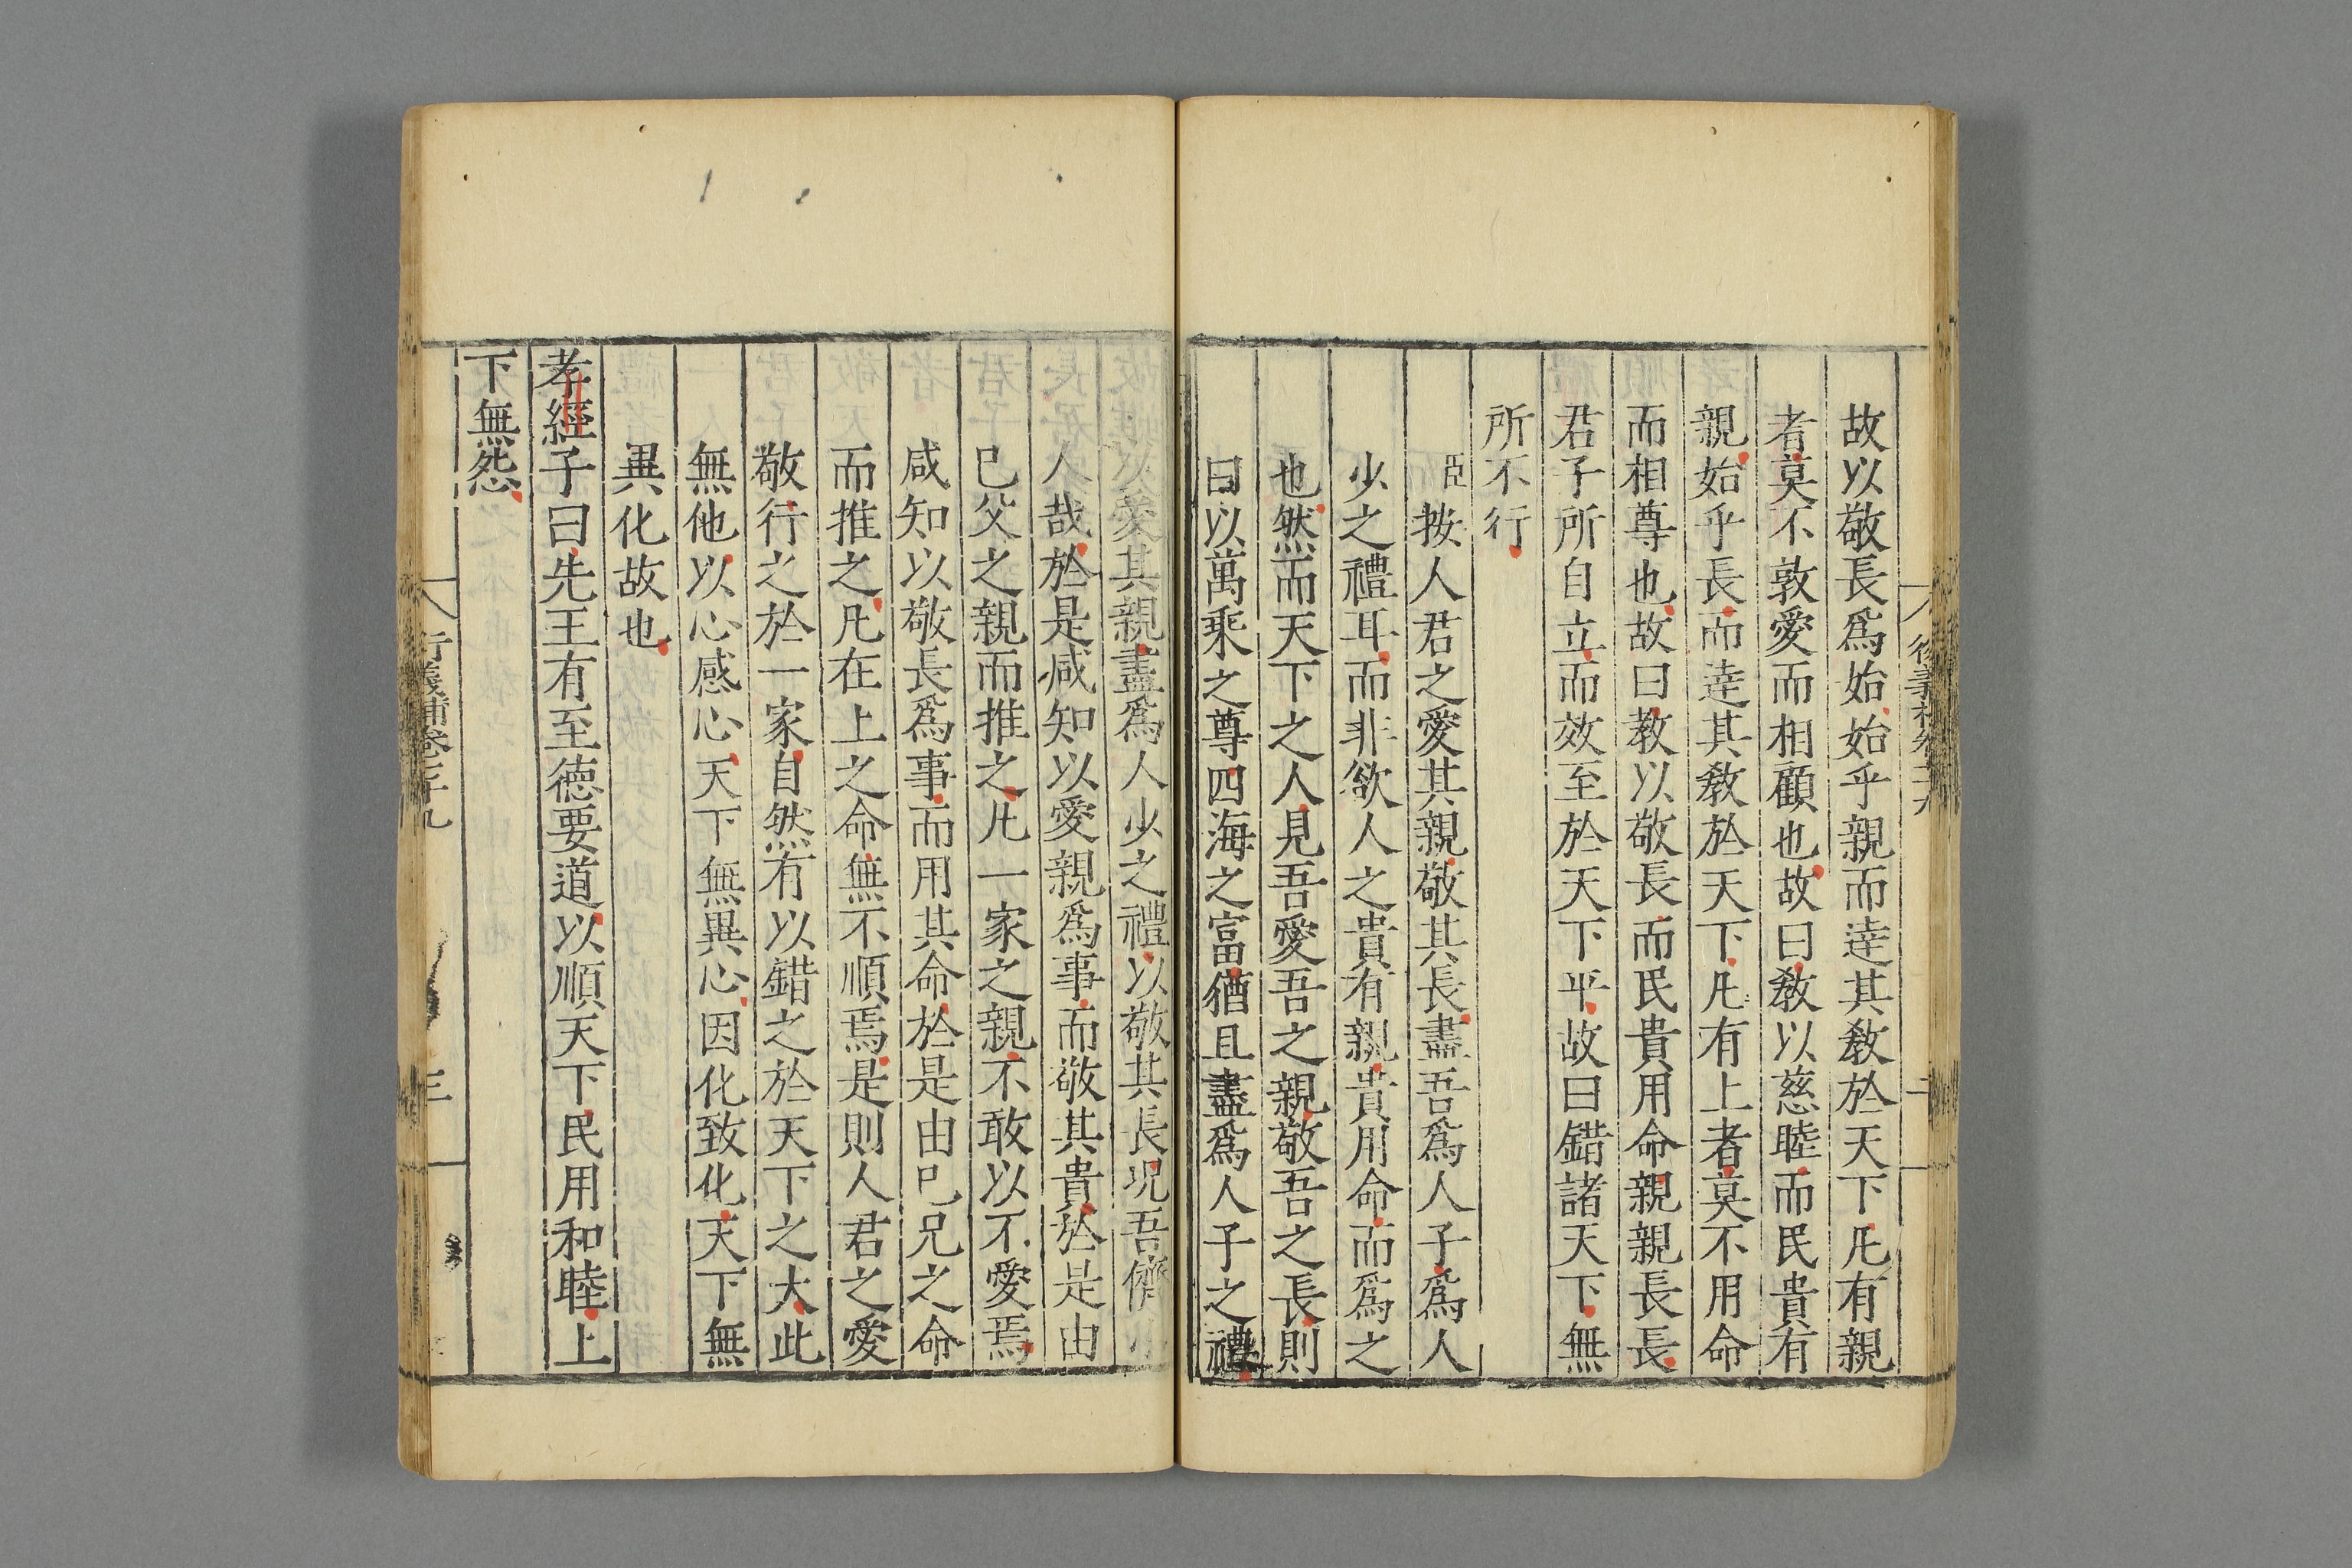 故以敬長爲始始乎親而逹其敎於天下凡有親
者莫不敦愛而相顧也故曰敎以慈睦而民貴有
親始乎長而逹其敎於天下凡有上者莫不用命
而相尊也故曰教以敬長而民貴用命親親長長
君子所自立而效至於天下平故曰錯諸天下無
所不行
臣按人君之愛其親敬其長盡吾爲人子爲人
少之禮耳而非欲人之貴有親貴用命而爲之
也然而天下之人見吾愛吾之親敬吾之長則
曰以萬乘之尊四海之富猶且盡爲人子之禮
以愛其親盡爲人少之禮以敬其長況吾儕小
人哉於是咸知以愛親爲事而敬其貴於是由
已父之親而推之凡一家之親不敢以不愛焉
咸知以敬長爲事而用其命於是由已兄之命
而推之凡在上之命無不順焉是則人君之愛
敬行之於一家自然有以錯之於天下之大此
無他以心感心天下無異心因化致化天下無
異化故也
孝經子曰先王有至德要道以順天下民用和睦上
下無怨
衍義補卷七十九
三